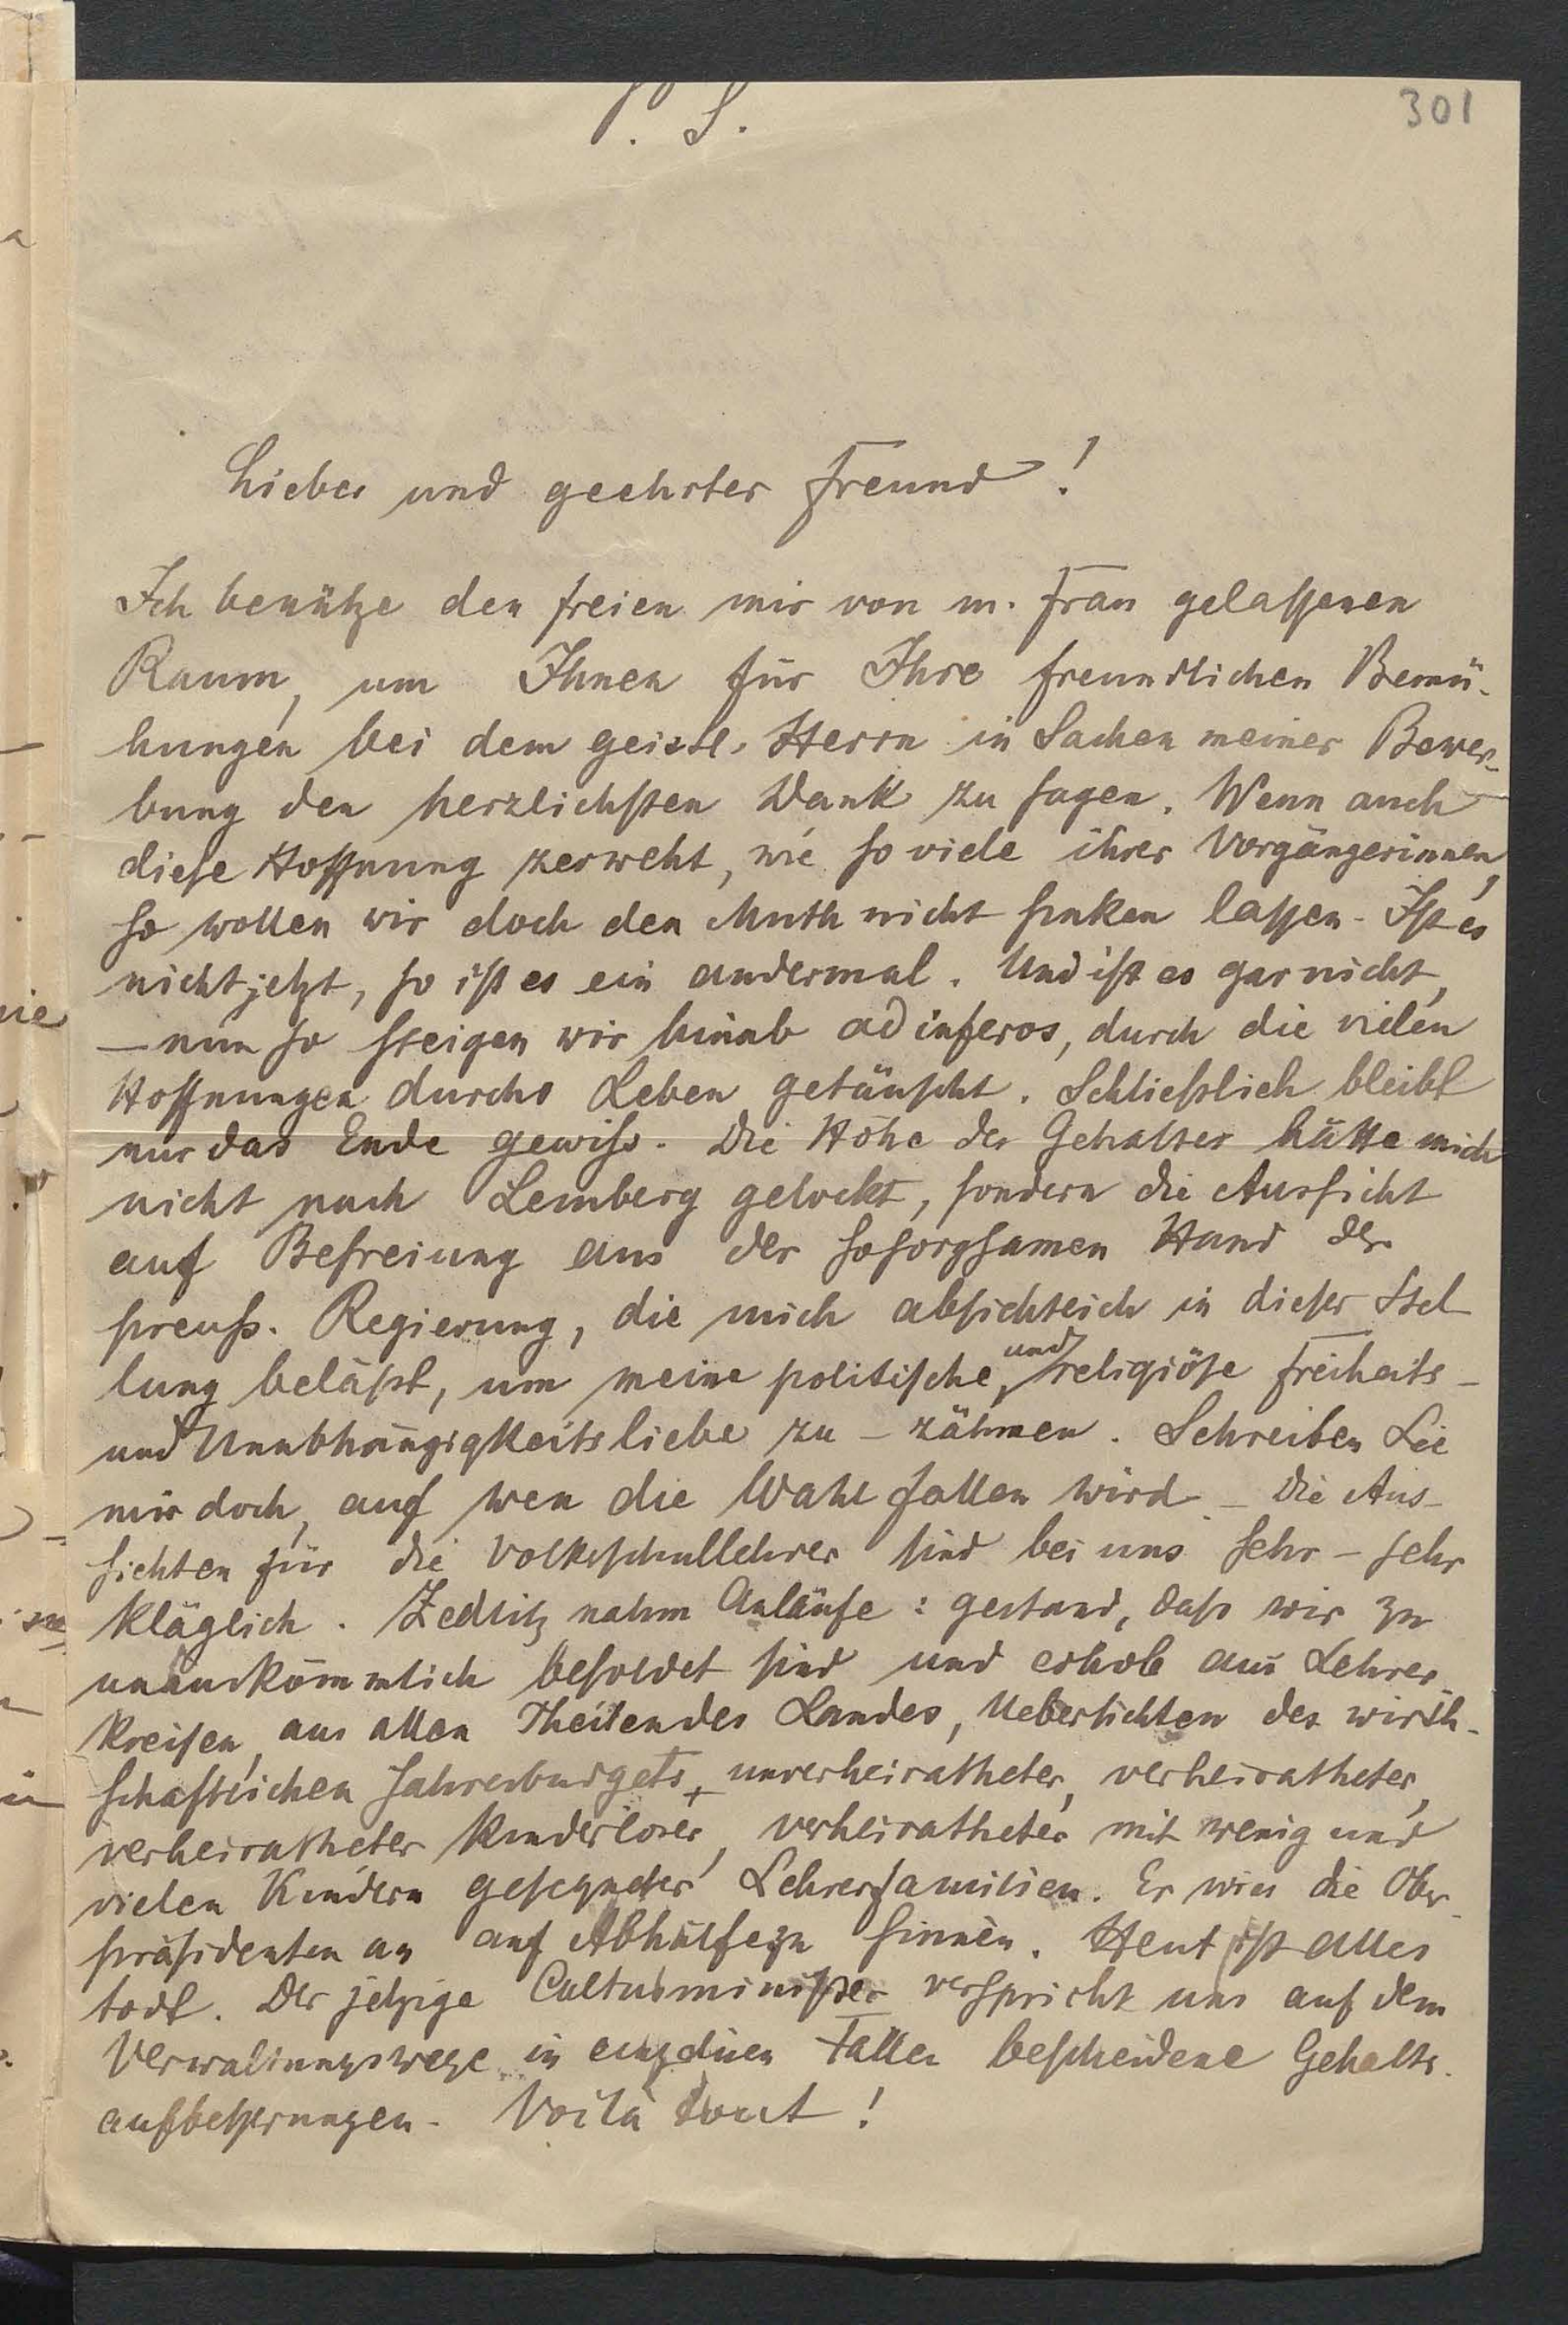 301
P. S.
Lieber und geehrter Freund!
Ich benütze den freien mir von m. Frau gelassenen
Raum, um Ihnen für Ihre freundlichen Bemü-
hungen bei dem geistl. Herrn in Sachen meiner Bewer-
bung den herzlichsten Dank zu sagen. Wenn auch
diese Hoffnung zerweht, wie so viele ihrer Vorgängerinnen,
so wollen wir doch den Muth nicht sinken lassen. Ist es
nicht jetzt, so ist es ein andermal. Und ist es gar nicht,
– nun so steigen wir hinab ad inferos, durch die vielen
Hoffnungen durchs Leben getäuscht. Schließlich bleibt
nur das Ende gewiß. Die Höhe des Gehaltes hätte mich
nicht nach Lemberg gelockt, sondern die Aussicht
auf Befreiung aus der so sorgsamen Hand der
preuß. Regierung, die mich absichtlich in dieser Stel-
lung beläßt, um meine politische und religiöse Freiheits-
und Unabhängigkeitsliebe zu – zähmen. Schreiben Sie
mir doch, auf wen die Wahl fallen wird. – Die Aus-
sichten für die Volksschullehrer sind bei uns sehr – sehr
kläglich. Zedlitz nahm Anläufe: gestand, daß wir zu
unauskömmlich besoldet sind und erhob aus Lehrer-
kreisen, aus allen Theilen des Landes, Uebersichten des wirth-
schaftlichen Jahresbudgets, unverheiratheter, verheiratheter,
verheiratheter kinderloser, verheiratheter mit wenig und
vielen Kindern gesegneter Lehrerfamilien. Er wies die Ober-
präsidenten an auf Abhülfe zu sinnen. Heut ist alles
todt. Der jetzige Cultusminister verspricht uns auf dem
Verwaltungswege in einzelnen Fällen bescheidene Gehalts-
aufbesserungen. Voilà tout!